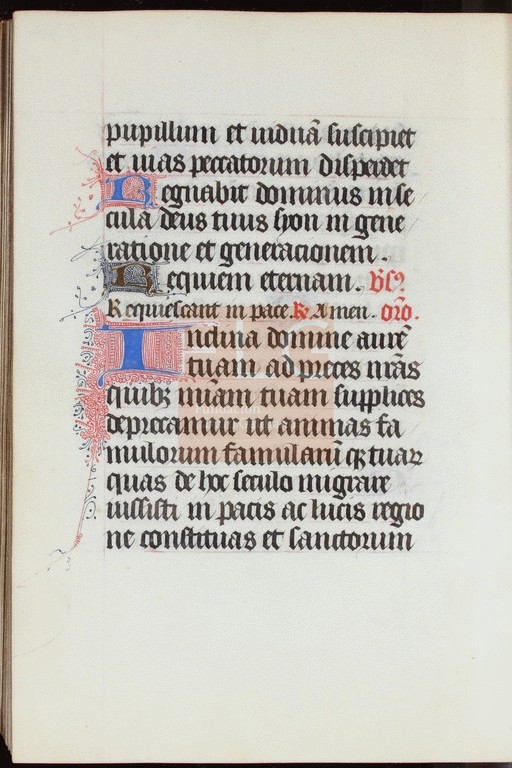 pupillum et viduā suscipiet
et vias peccatorum disperdet
Regnabit dominus in se
cula deus tuus syon in gene
ratione et generacionem.
Requiem eternam. v̄s.
Requiescant in pace. R. Amen. orō.
Inclina domine aurē
tuam ad preces nr̄as
quibꝫ mīam tuam supplices
deprecamur ut animas fa
mulorum famularūqꝫ tuaꝝ
quas de hoc seculo migrare
iussisti in pacis ac lucis regio
ne constituas et sanctorum